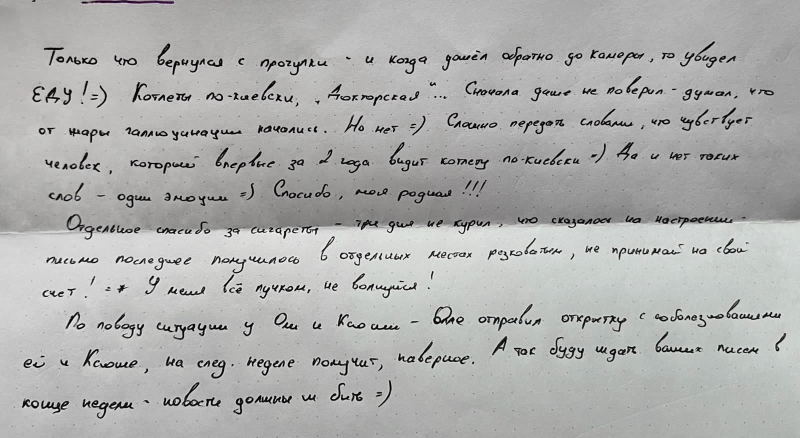 Только что вернулся с прогулки - и когда дошёл обратно до камеры, то увидел
ЕДУ! =) Котлеты по-киевски, „Докторская"... Сначала даже не поверил - думал, что
от жары галлюцинации начались. Но нет =). Сложно передать словами, что чувствует
человек, который впервые за 2 года видит котлету по-киевски =) Да и нет таких
слов - одни эмоции =) Спасибо, моя родная!!!
Отдельное спасибо за сигареты - три дня не курил, что сказалось на настроении -
письмо последнее получилось в отдельных местах резковатым, не принимай на свой
счет! =* У меня всё пучком, не волнуйся!
По поводу ситуации у Оли и Ксюши - Оле отправил открытку с соболезнованиями
ей и Ксюше, на след. неделе получит, наверное. А так буду ждать ваших писем в
конце недели - новости должны ж быть =)